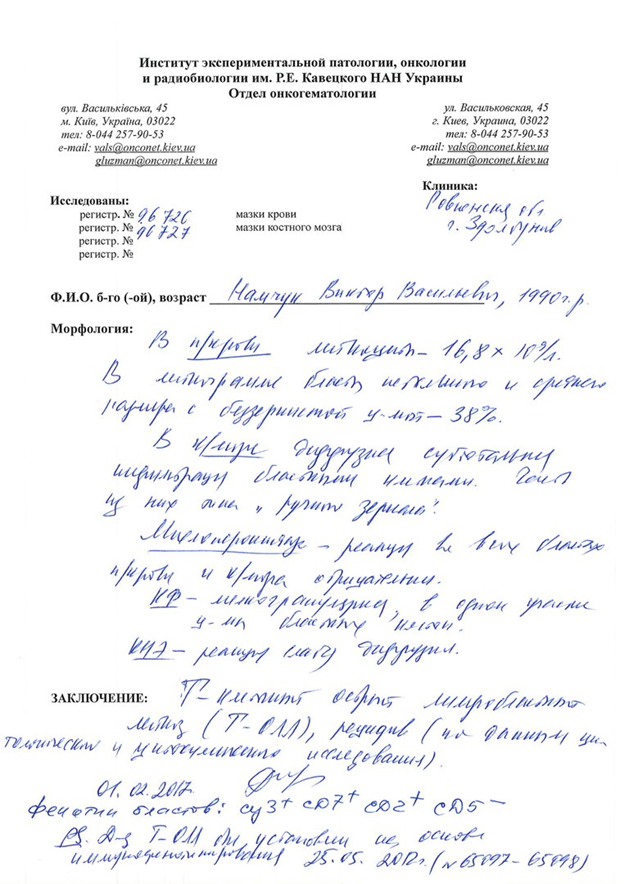 Институт экспериментальной патологии, онкологии
и радиобиологии им. Р.Е. Кавецкого НАН Украины
Отдел онкогематологии
вул. Васильківська, 45
м. Київ, Україна, 03022
тел: 8-044 257-90-53
e-mail: vals@onconet.kiev.ua
gluzman@onconet.kiev.ua
ул. Васильковская, 45
г. Киев, Украина, 03022
тел: 8-044 257-90-53
e-mail: vals@onconet.kiev.ua
gluzman@onconet.kiev.ua
Исследованы:
регистр. № 96 726 мазки крови
регистр. № 96 727 мазки костного мозга
регистр. №
регистр. №
Клиника:
Ровенская обл
г. Здолбунив
Ф.И.О. б-го (-ой), возраст Намчук Виктор Васильевич, 1990г.р.
Морфология:
В п/крови лейкоциты – 16,8 × 10⁹/л.
В бласты небольшого и среднего
размера с беззернистой ц-мой – 38%.
В к/мозге диффузная субтотальная
инфильтрация бластными клетками. Часть
из них типа "ручного зеркала".
Миелопероксидаза – реакция во всех бластах
п/крови и к/мозга отрицательная.
КФ – в одном участке
ц-мы бластных клеток.
реакция диффузная.
ЗАКЛЮЧЕНИЕ: Т-клеточный острый лимфобластный
лейкоз (Т-ОЛЛ), рецидив (по данным ци-
тологического и цитохимического исследования).
01.02.2017
Фенотип бластов: cy3⁺ CD7⁺ CD2⁺ CD5⁻
Д-з Т-ОЛЛ был установлен на основе
иммунофенотипирования 25.05.2012г. (№ 65097-65098)